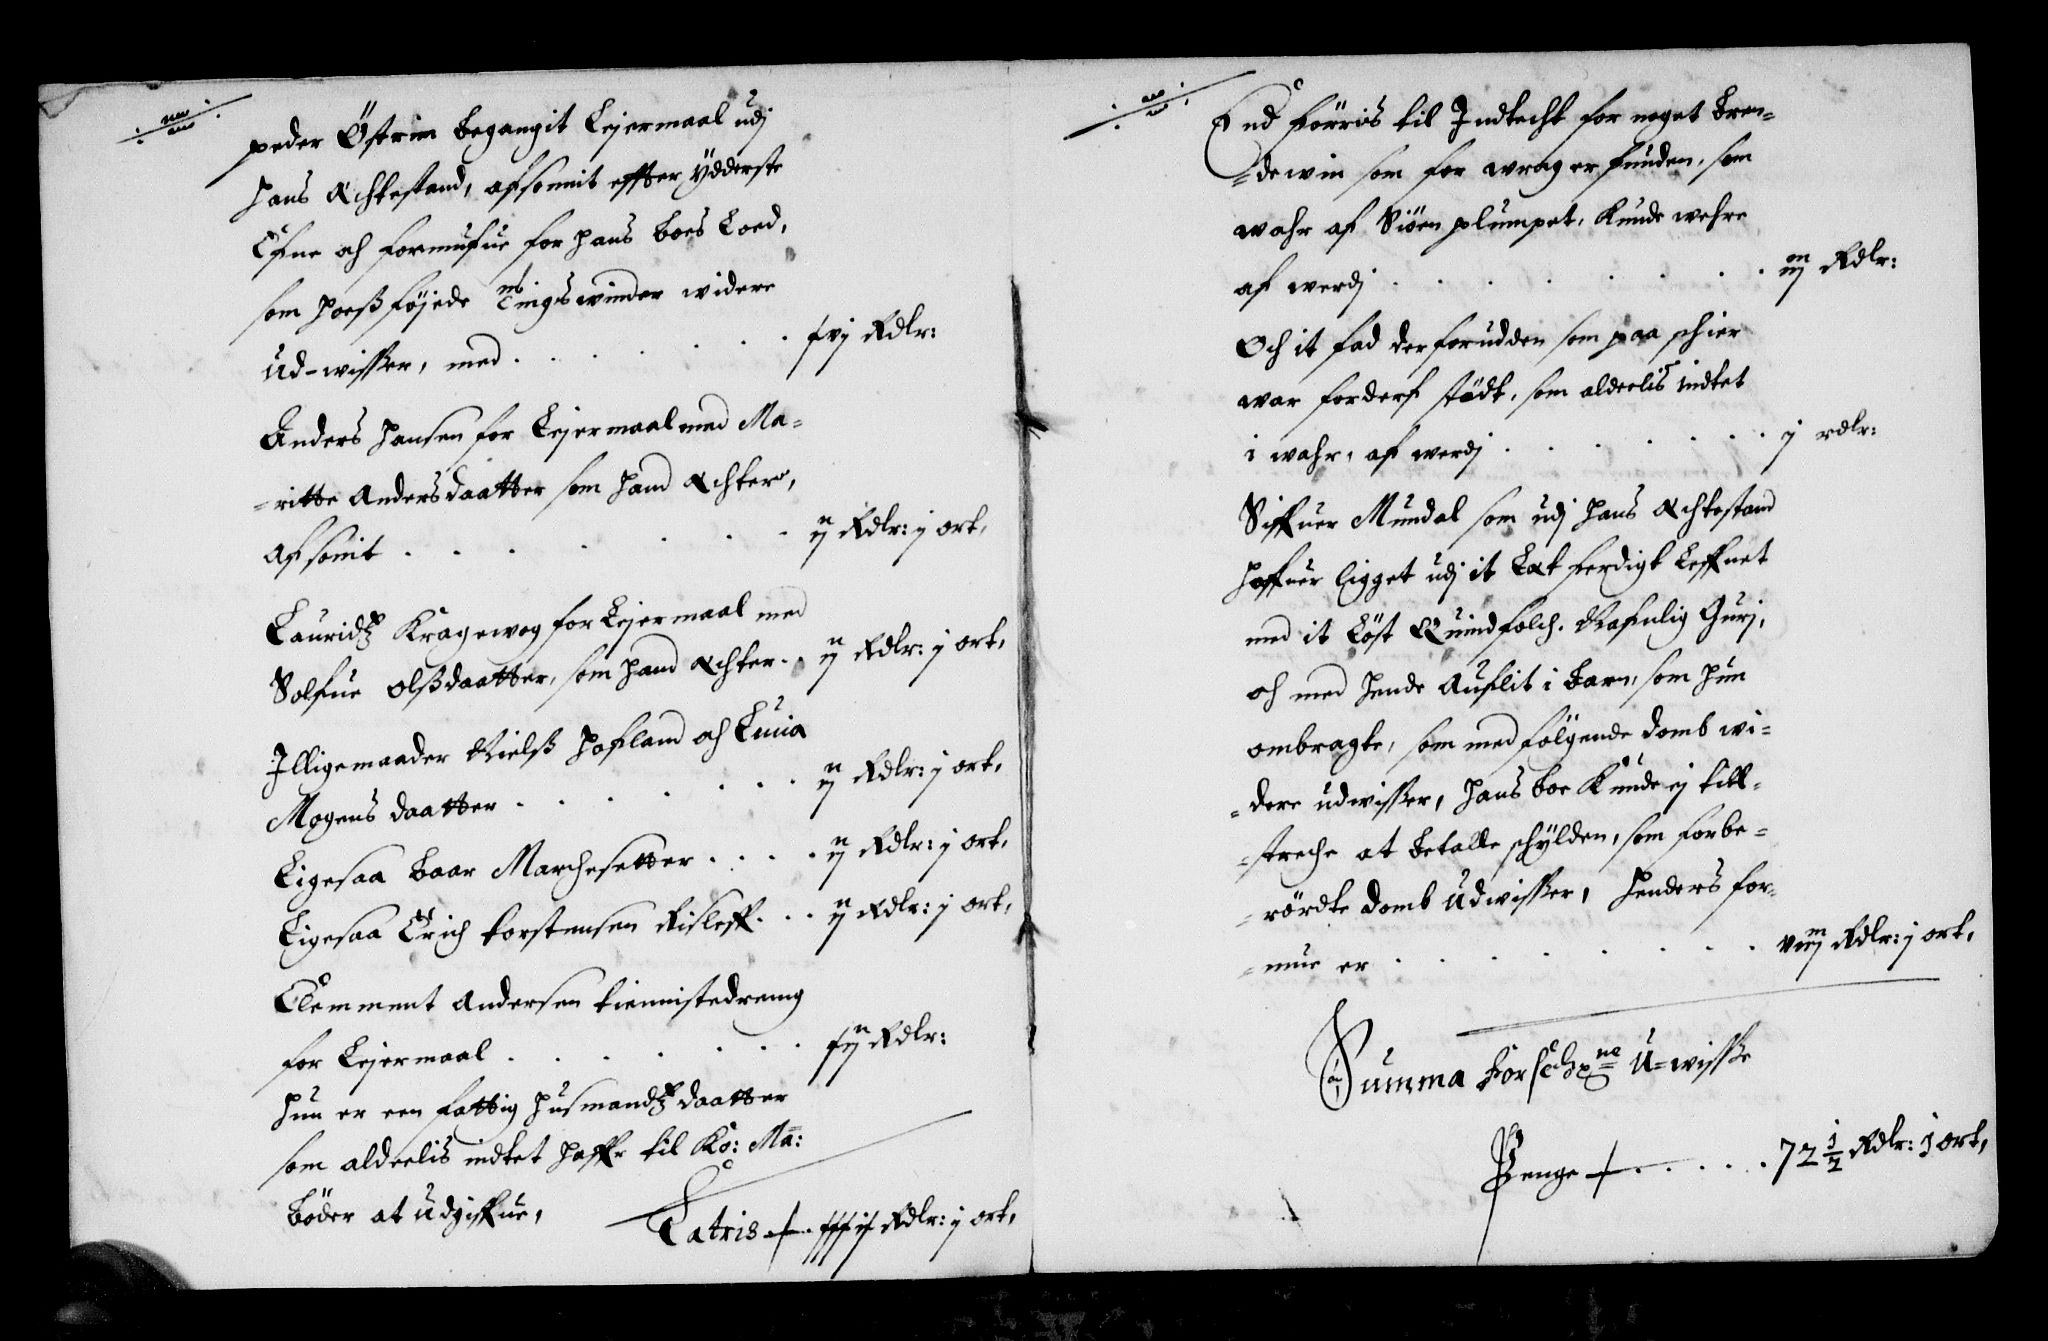 peder Östrim begangit Leyermaal udj
hans Echtestand, afsonnit effter ÿdderste
Efne och formufue for hans boes Loed,
som hoesføjede tingswinder widere
Ud-wisser, med . . . . . . . xvj Rdlr:
Anders hansen for Leyermaal med Ma-
-ritte Andersdaatter som hand Echter,
afsonit . . . . . . . ij Rdlr: j ort,
Lauridtz Kragewog for Leyermaal med
Solfue Olßdaatter, som hand Echter . . ij Rdlr: j ort,
Illigemaader Nielß hofland och Luuia
Mogens daatter . . . . . . . ij Rdlr: j ort,
Ligesaa Baar Marchesetter . . . . ij Rdlr: j ort,
Ligesaa Erich torstensen Risleff . . . ij Rdlr: j ort,
Clemment Andersen tiennistedreng
for Leyermaal . . . . . . . xij Rdlr:
hun er een fattig husmandtz daatter
som aldeelis indtet haffr til Ko: Ma:
bøder at udgiffue,
Latris xxxix Rdlr: j ort,
End förris til Indtecht for noget bren-
-dewin som for wrag er funden, som
wahr af Siöen plumpet, Kunde wehre
af werdj . . . . . . . iij Rdlr:
Och it fad der forudden som paa schier
war forderf stödt, som aldeelis indtet
i wahr, af werdj . . . . . . . j rdlr:
Siffuer Mundal som udj hans Echtestand
haffuer ligget udj it Løtferdigt Leffnet
med it Löst Quindfolch. Nafnlig Gurj,
och med hende Auflit i barn, som hun
ombragte, som med fölgende domb wi-
-dere udwisser, hans boe Kunde ej till-
-streche at betalle schÿlden, som forbe-
-rördte domb Udwisser, henders for-
-mue er . . . . . . . viij Rdlr: j ort,
Summa forschne U-wisse
Penge . . . . . 72 1/2 Rdlr: j ort,